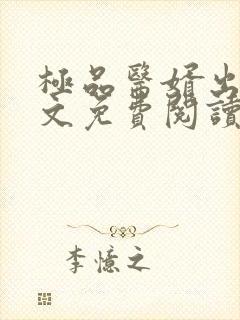 極品醫婿出
文免費閱讀
李憶之